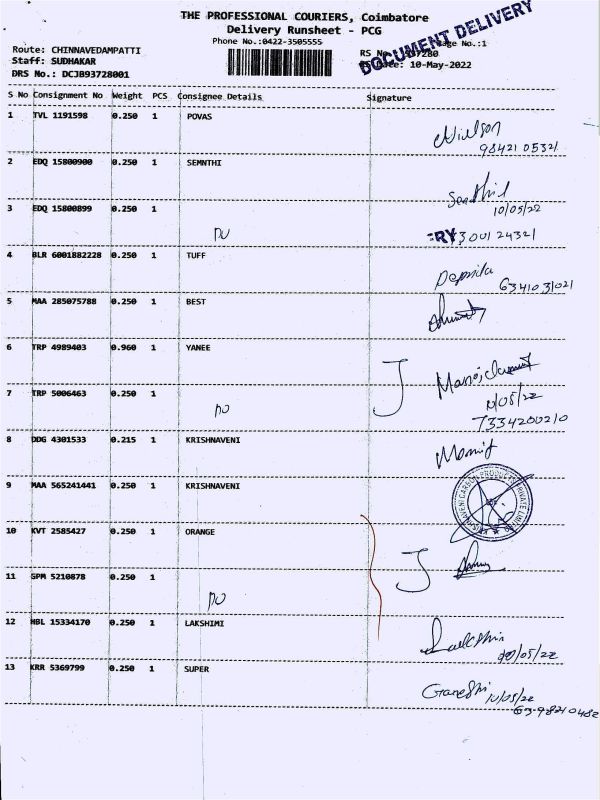 THE PROFESSIONAL COURIERS, Coimbatore
Delivery Runsheet - PCG
Phone No.:0422-3505555
DOCUMENT DELIVERY
Page No.:1
Route: CHINNAVEDAMPATTI
Staff: SUDHAKAR
DRS No.: DCJB93728001
RS No.
Date: 10-May-2022
S No Consignment No Weight PCS Consignee Details Signature
1 TVL 1191598 0.250 1 POVAS
98421 05321
2 EDQ 15800900 0.250 1 SEMNTHI
Senthil
10/05/22
3 EDQ 15800899 0.250 1
DU
RY 3001 24321
4 BLR 6001882228 0.250 1 TUFF
6341031021
5 MAA 285075788 0.250 1 BEST
6 TRP 4989403 0.960 1 YANEE
7 TRP 5006463 0.250 1
DU
10/05/22
7334200210
8 DDG 4301533 0.215 1 KRISHNAVENI
9 MAA 565241441 0.250 1 KRISHNAVENI
KRISHNAVENI CARBON PRODUCTS PRIVATE LIMITED
10 KVT 2585427 0.250 1 ORANGE
11 GPM 5210878 0.250 1
DU
12 HBL 15334170 0.250 1 LAKSHIMI
10/05/22
13 KRR 5369799 0.250 1 SUPER
10/05/22